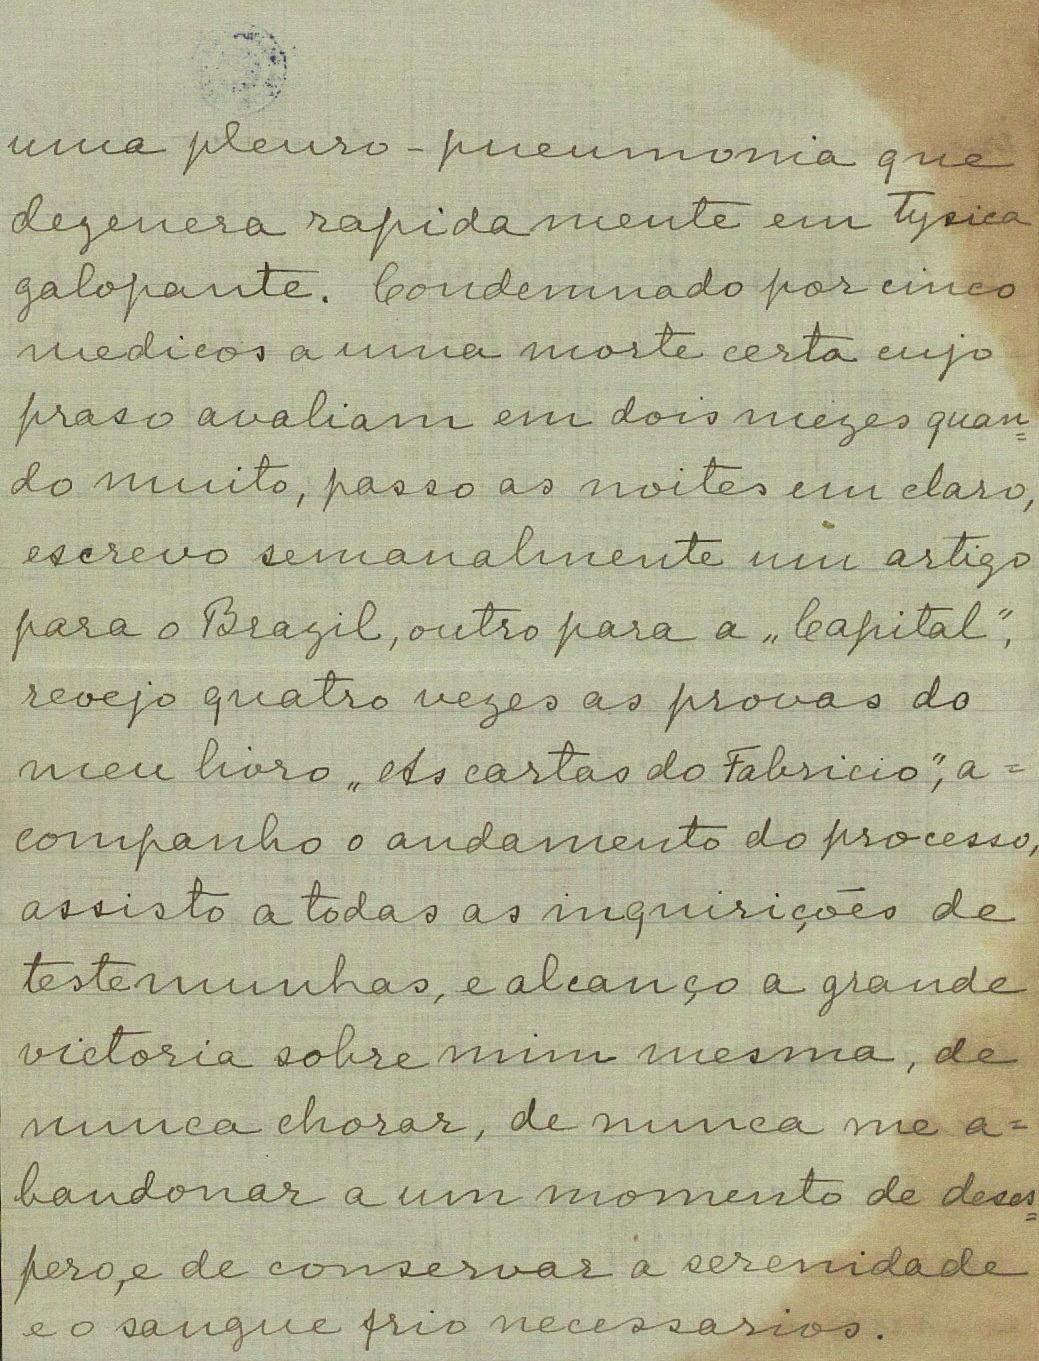 uma pleuro-pneumonia que
degenera rapidamente em tysica
galopante. Condemnado por cinco
medicos a uma morte certa cujo
praso avaliam em dois mezes quan=
do muito, passo as noites em claro,
escrevo semanalmente um artigo
para o Brazil, outro para a „Capital”,
revejo quatro vezes as provas do
meu livro „As cartas do Fabricio”, a=
companho o andamento do processo,
assisto a todas as inquirições de
testemunhas, e alcanço a grande
victoria sobre mim mesma, de
nunca chorar, de nunca me a=
bandonar a um momento de deses=
pero, e de conservar a serenidade
e o sangue frio necessarios.